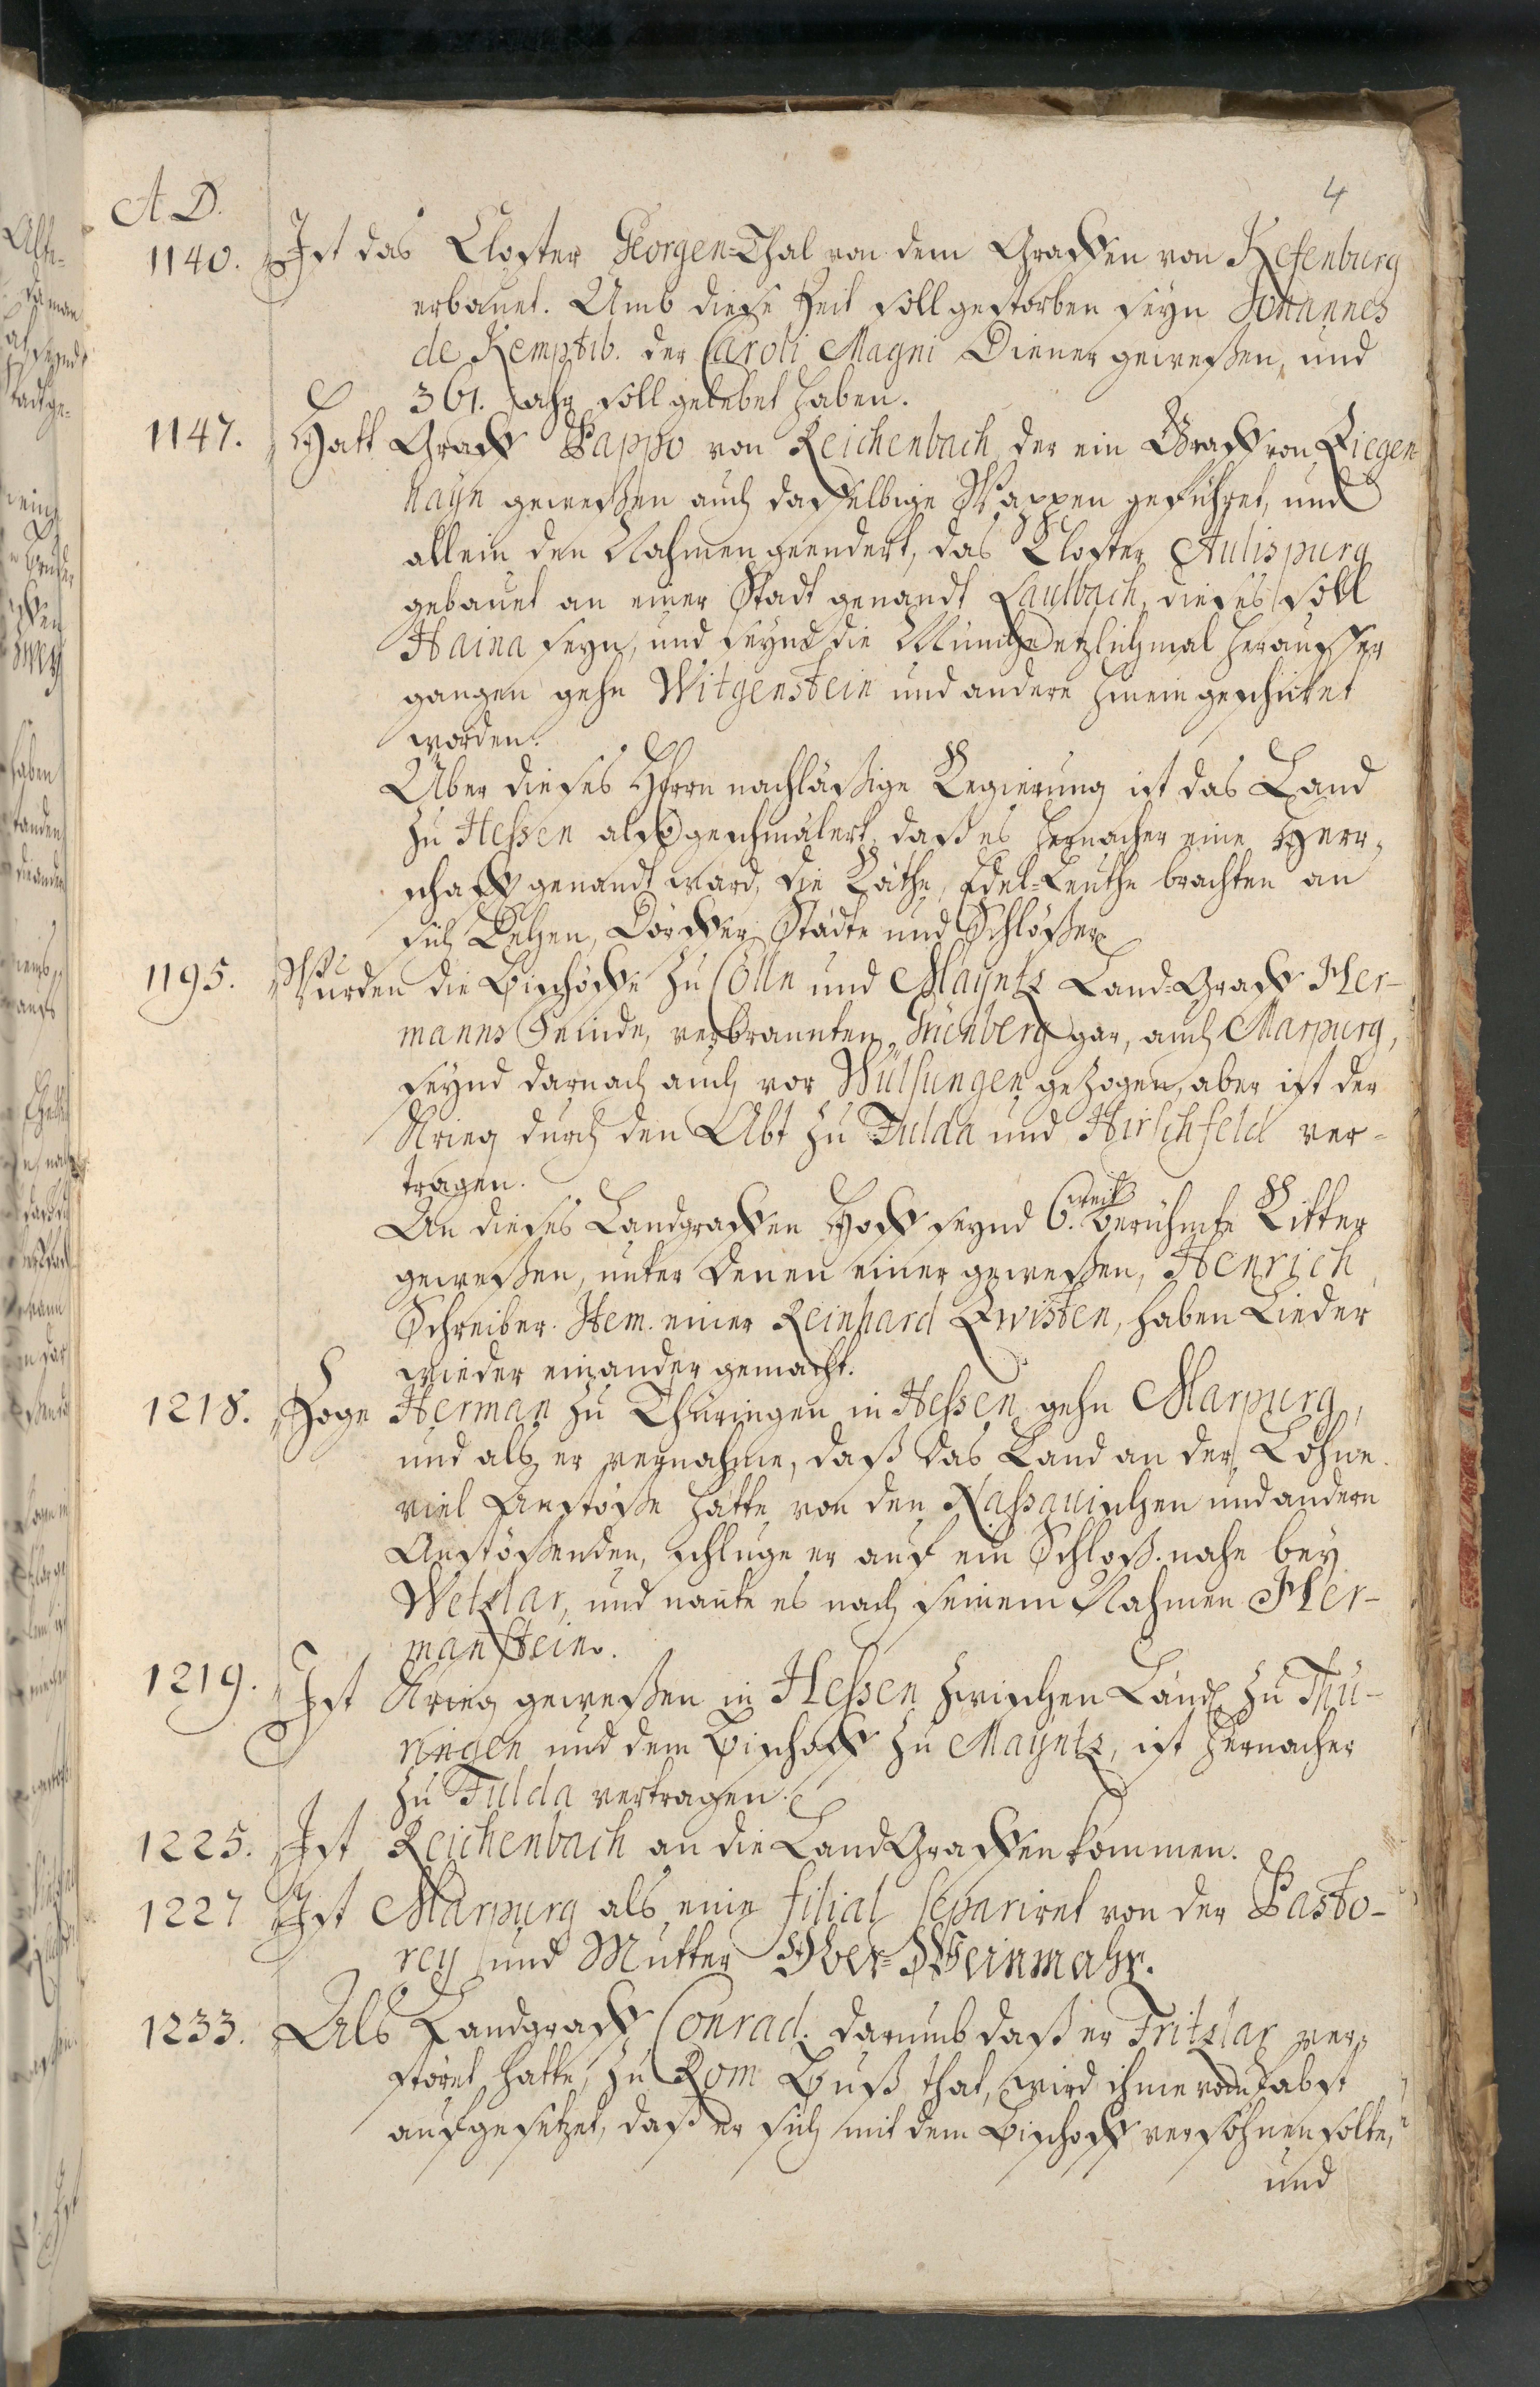 4
A. D.
1140. Ist das Closter Georgen-Thal von dem Graffen von Kefenburg
erbauet. Umb diese Zeit soll gestorben seyn Johannes
de Kemptib. der Caroli Magni Diener geweßen, und
361. Jahr soll gelebet haben.
1147. Hatt Graff Pappo von Reichenbach der ein Graff von Ziegen-
hayn geweßen auch dasselbige Wappen geführet, und
allein den Nahmen geendert, das Closter Aulispurg
gebauet an einer Stadt genandt Laulbach, dieses soll
Haina seyn, und seynd die Münche etzlichmal heraußer
gangen gehn Witgenstein und andere hinein geschicket
worden.
Über dieses Herrn nachläßige Regierung ist das Land
zu Hessen also geschmälert, daß es hernacher eine Herr-
schafft genandt ward, die Räthe, Edel-Leuthe brachten an
sich Zehen, Dörffer, Städte und Schlößer.
1195. Wurden die Bischöffe zu Cölln und Mayntz Land-Graff Her-
manns Feinde, verbrannten Grünberg gar, auch Marpurg,
seynd darnach auch vor Wülfungen gezogen, aber ist der
Krieg durch den Abt zu Fulda und Hirschfeld ver-
tragen.
An dieses Landgraffen Hoff seynd 6. weit berühmte Ritter
geweßen, unter denen einer geweßen, Henrich
Schreiber. Item. einer Reinhard Zwisten, haben Lieder
wieder einander gemacht.
1218. Zoge Herman zu Thüringen in Hessen gehn Marpurg,
und als er vernahme, daß das Land an der Lohne
viel Anstöße hätte von den Nassauischen und andern
Anstößenden, schluge er auf ein Schloß nahe bey
Wetzlar, und nante es nach seinem Nahmen Her-
manstein.
1219. Ist Krieg geweßen in Hessen zwischen Land zu Thü-
ringen und dem Bischoff zu Mayntz, ist hernacher
zu Fulda vertragen.
1225. Ist Reichenbach an die LandGraffen kommen.
1227 Ist Marpurg als eine filial separiret von der Pasto-
rey und Mutter Ober-Weinmahr.
1233. Als Landgraff Conrad. darumb daß er Fritzlar ver-
störet hatte, zu Rom Buß that, wird ihme vom Pabst
aufgesetzet, daß er sich mit dem Bischoff versöhnen solte,
und